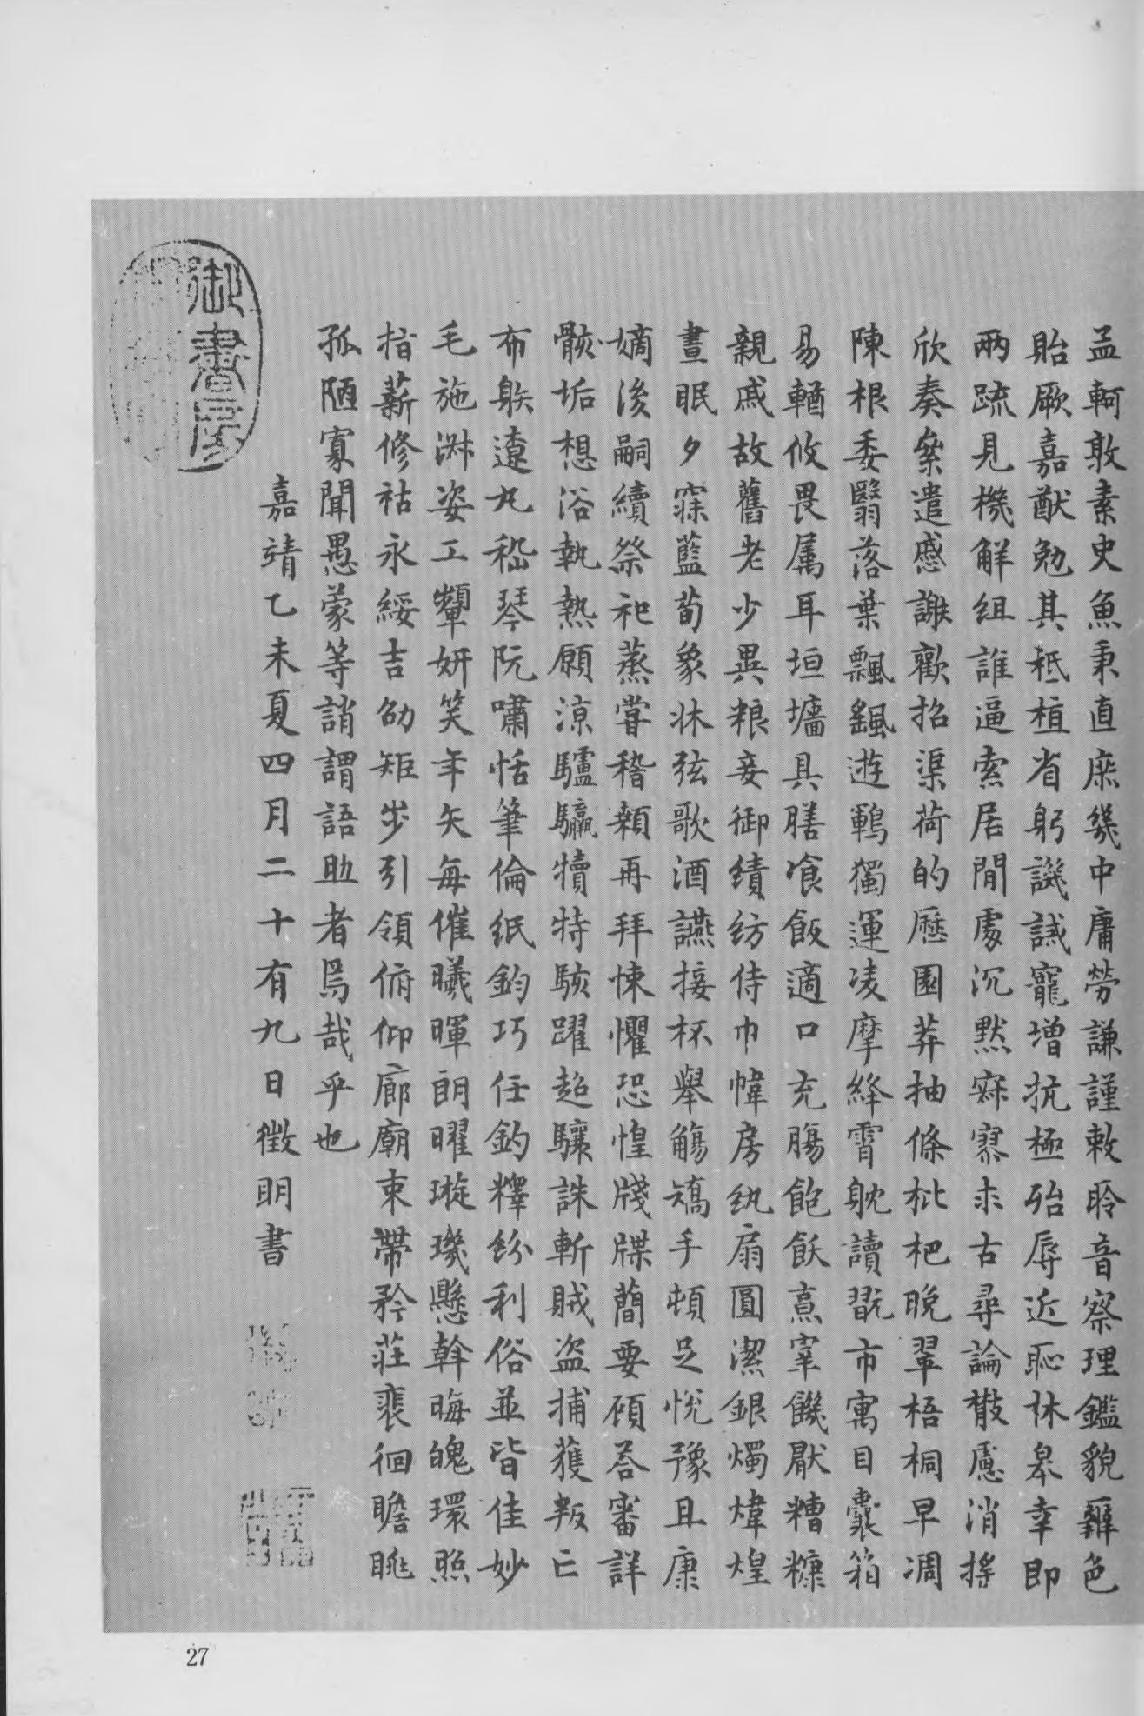 孟軻敦素史魚秉直庶幾中庸勞謙謹敕聆音察理鑑貌辨色
貽厥嘉猷勉其秪植省躬譏誡寵增抗極殆辱近恥林皋幸即
兩疏見機解組誰逼索居閒處沉默寂寥求古尋論散慮消摇
欣奏累遣慼謝歡招渠荷的歷園莽抽條枇杷晚翠梧桐早凋
陳根委翳落葉飄颻遊鵾獨運凌摩絳霄耽讀翫市寓目囊箱
易輶攸畏属耳垣墻具膳飡飯適口充腸飽飫烹宰饑厭糟糠
親戚故舊老少異粮妾御績紡侍巾帷房紈扇圓潔銀燭煒煌
晝眠夕寐藍荀象牀弦歌酒讌接杯舉觴矯手頓足悅豫且康
嫡後嗣續祭祀蒸嘗稽顙再拜悚懼恐惶牋牒簡要顧荅審詳
骸垢想浴執熱願涼驢騾犢特駭躍超驤誅斬賊盜捕獲叛亡
布䠶遼丸嵇琴阮嘯恬筆倫紙鈞巧任釣釋紛利俗並皆佳妙
毛施淑姿工顰妍笑年矢每催曦暉朗曜璇璣懸斡晦魄環照
指薪修祜永綏吉劭矩步引領俯仰廊廟束帶矜莊裴徊瞻眺
孤陋寡聞愚蒙等誚謂語助者焉哉乎也
嘉靖乙未夏四月二十有九日徵明書
御書房
27